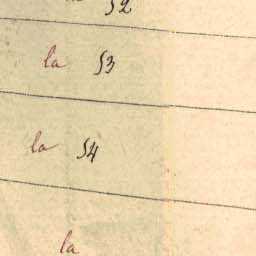 52
la 53
la 54
la